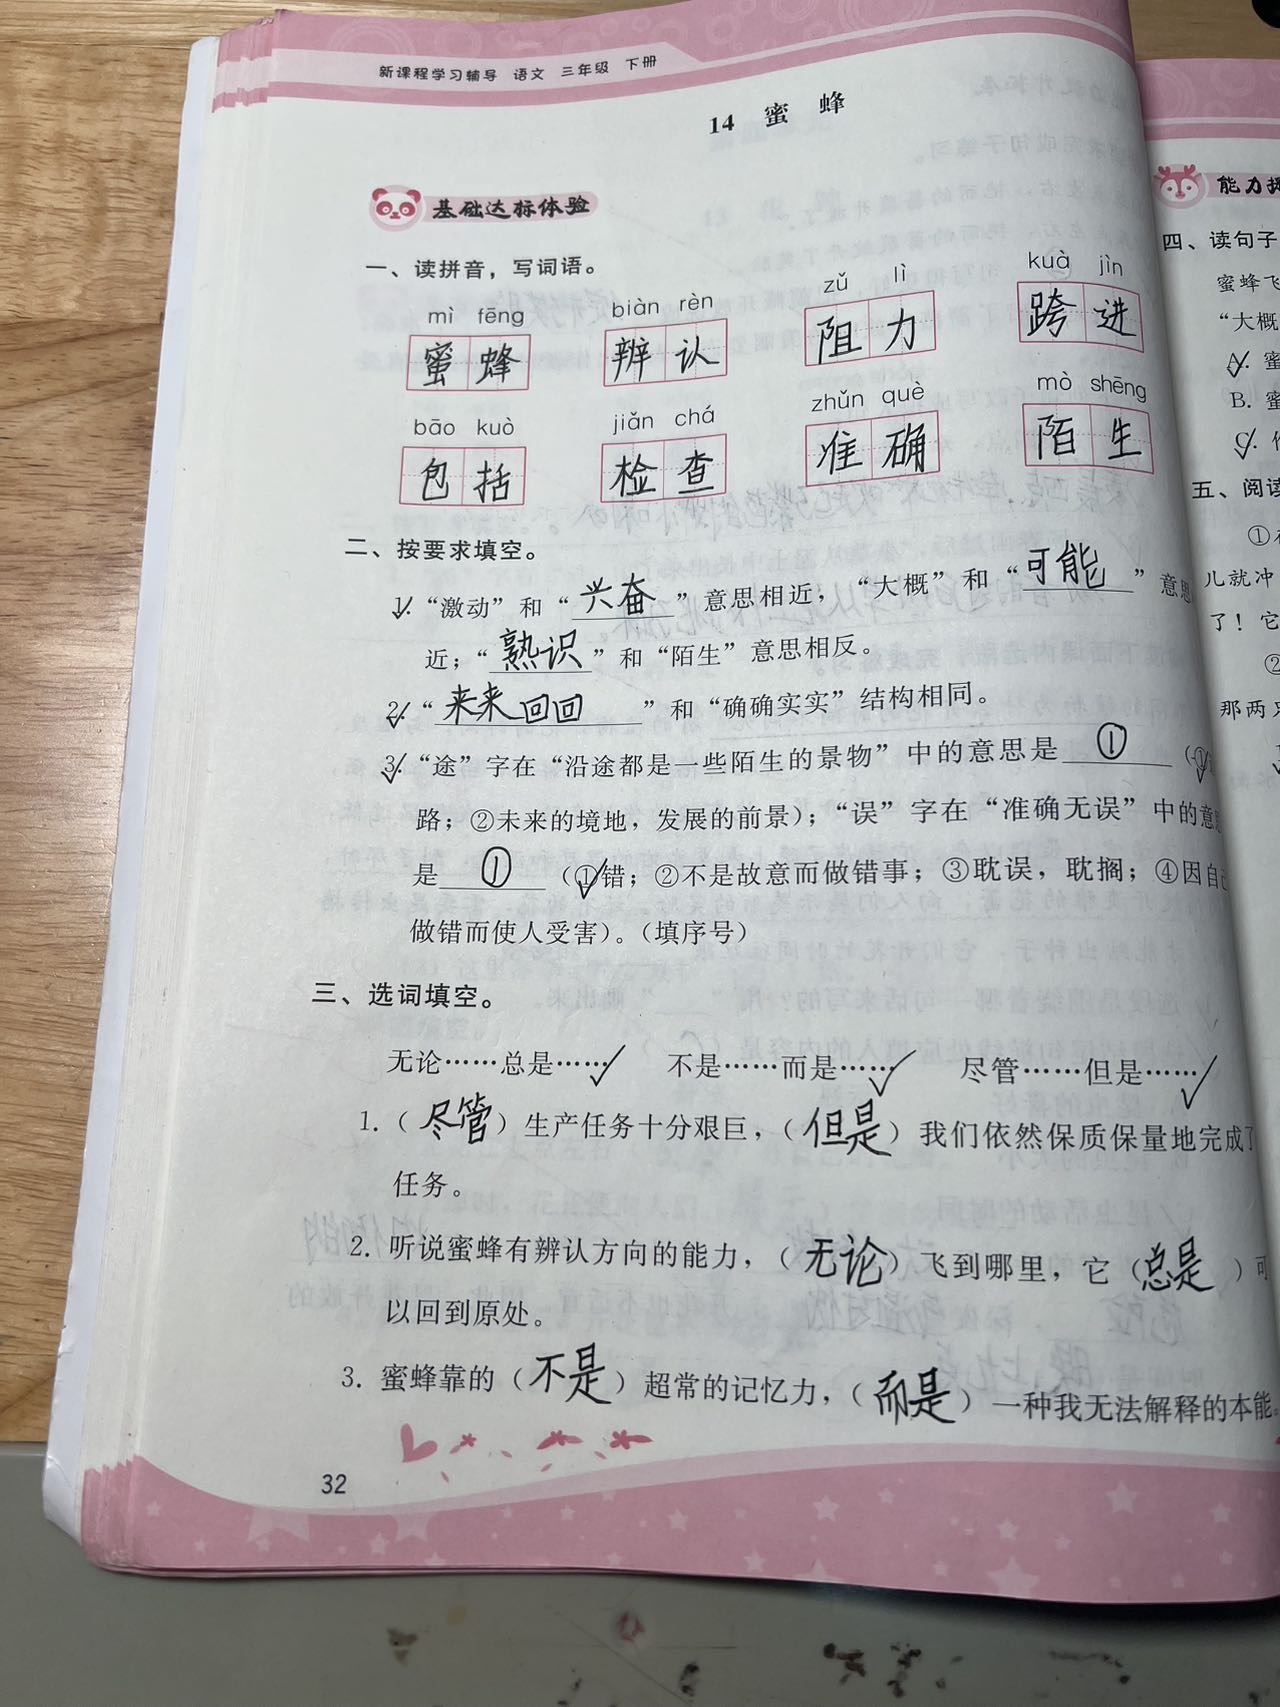 新课程学习辅导 语文 三年级 下册
14 蜜 蜂
基础达标体验
一、读拼音，写词语。
mì fēng biàn rèn zǔ lì kuà jìn
蜜蜂 辨认 阻力 跨进
bāo kuò jiǎn chá zhǔn què mò shēng
包括 检查 准确 陌生
二、按要求填空。
1. “激动”和“兴奋”意思相近，“大概”和“可能”意思
近；“熟识”和“陌生”意思相反。
2. “来来回回”和“确确实实”结构相同。
3. “途”字在“沿途都是一些陌生的景物”中的意思是 ① （①
路；②未来的境地，发展的前景）；“误”字在“准确无误”中的意
是 ① （①错；②不是故意而做错事；③耽误，耽搁；④因自
做错而使人受害）。（填序号）
三、选词填空。
无论……总是…… 不是……而是…… 尽管……但是……
1.（尽管）生产任务十分艰巨，（但是）我们依然保质保量地完成了
任务。
2. 听说蜜蜂有辨认方向的能力，（无论）飞到哪里，它（总是）可
以回到原处。
3. 蜜蜂靠的（不是）超常的记忆力，（而是）一种我无法解释的本能。
32
能力
四、读句子
蜜蜂飞
“大概
A. 蜜
B. 蜜
C.
五、阅读
①
儿就冲
了！它
②
那两只